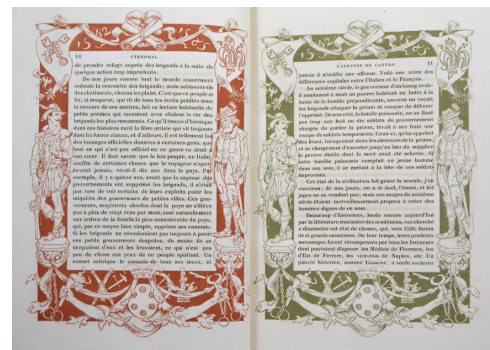 10 STENDHAL
de prendre refuge auprès des brigands à la suite de
quelque action trop imprudente.
De nos jours encore tout le monde assurément
redoute la rencontre des brigands; mais subissent-ils
des châtiments, chacun les plaint. C'est que ce peuple si
fin, si moqueur, qui rit de tous les écrits publiés sous
la censure de ses maîtres, fait sa lecture habituelle de
petits poèmes qui racontent avec chaleur la vie des
brigands les plus renommés. Ce qu'il trouve d'héroïque
dans ces histoires ravit la fibre artiste qui vit toujours
dans les basses classes, et d'ailleurs, il est tellement las
des louanges officielles données à certaines gens, que
tout ce qui n'est pas officiel en ce genre va droit à
son cœur. Il faut savoir que le bas peuple, en Italie,
souffre de certaines choses que le voyageur n'aper-
cevrait jamais, vécût-il dix ans dans le pays. Par
exemple, il y a quinze ans, avant que la sagesse des
gouvernements eût supprimé les brigands, il n'était
pas rare de voir certains de leurs exploits punir les
iniquités des gouverneurs de petites villes. Ces gou-
verneurs, magistrats absolus dont la paye ne s'élève
pas à plus de vingt écus par mois, sont naturellement
aux ordres de la famille plus considérable du pays,
qui, par ce moyen bien simple, opprime ses ennemis.
Si les brigands ne réussissaient pas toujours à punir
ces petits gouverneurs despotes, du moins ils se
moquaient d'eux et les bravaient, ce qui n'est pas
peu de chose aux yeux de ce peuple spirituel. Un
sonnet satirique le console de tous ses maux, et
L'ABBESSE DE CASTRO 11
jamais il n'oublia une offense. Voilà une autre des
différences capitales entre l'Italien et le Français.
Au seizième siècle, le gouverneur d'un bourg avait-
il condamné à mort un pauvre habitant en butte à la
haine de la famille prépondérante, souvent on voyait
les brigands attaquer la prison et essayer de délivrer
l'opprimé. De son côté, la famille puissante, ne se fiant
pas trop aux huit ou dix soldats du gouvernement
chargés de garder la prison, levait à ses frais une
troupe de soldats temporaires. Ceux-ci, qu'on appelait
des bravi, bivaquaient dans les alentours de la prison,
et se chargeaient d'escorter jusqu'au lieu du supplice
le pauvre diable dont la mort avait été achetée. Si
cette famille puissante comptait un jeune homme
dans son sein, il se mettait à la tête de ces soldats
improvisés.
Cet état de la civilisation fait gémir la morale, j'en
conviens; de nos jours, on a le duel, l'ennui, et les
juges ne se vendent pas; mais ces usages du seizième
siècle étaient merveilleusement propres à créer des
hommes dignes de ce nom.
Beaucoup d'historiens, loués encore aujourd'hui
par la littérature routinière des académies, ont cherché
à dissimuler cet état de choses, qui, vers 1550, forma
de si grands caractères. De leur temps, leurs prudents
mensonges furent récompensés par tous les honneurs
dont pouvaient disposer les Médicis de Florence, les
d'Est de Ferrare, les vice-rois de Naples, etc. Un
pauvre historien, nommé Giannone, a voulu soulever